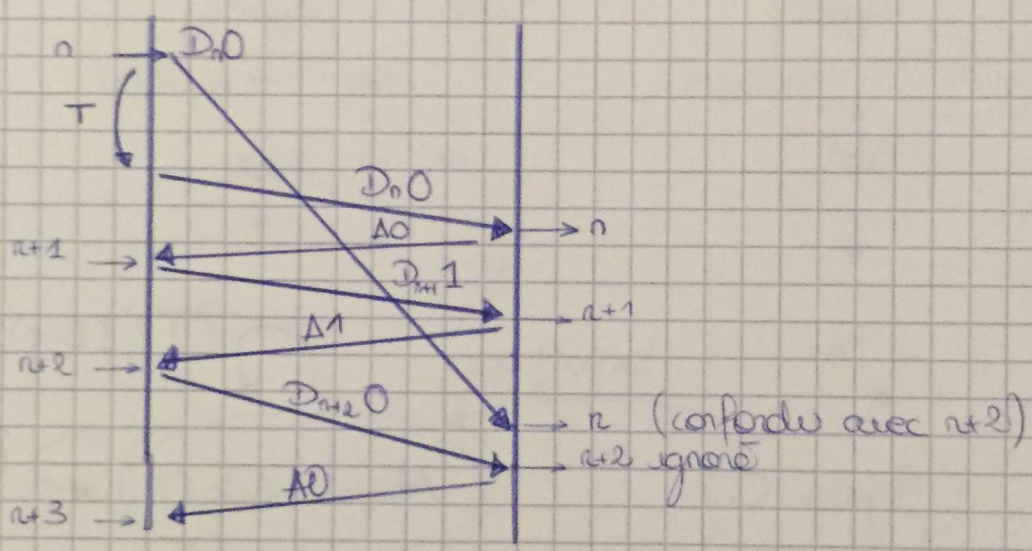 n → D_n0
T
D_n0
→ n
A0
n+1 →
D_n+1 1
→ n+1
A1
n+2 →
D_n+2 0
→ n (confondu avec n+2)
→ n+2 ignoré
A0
n+3 →